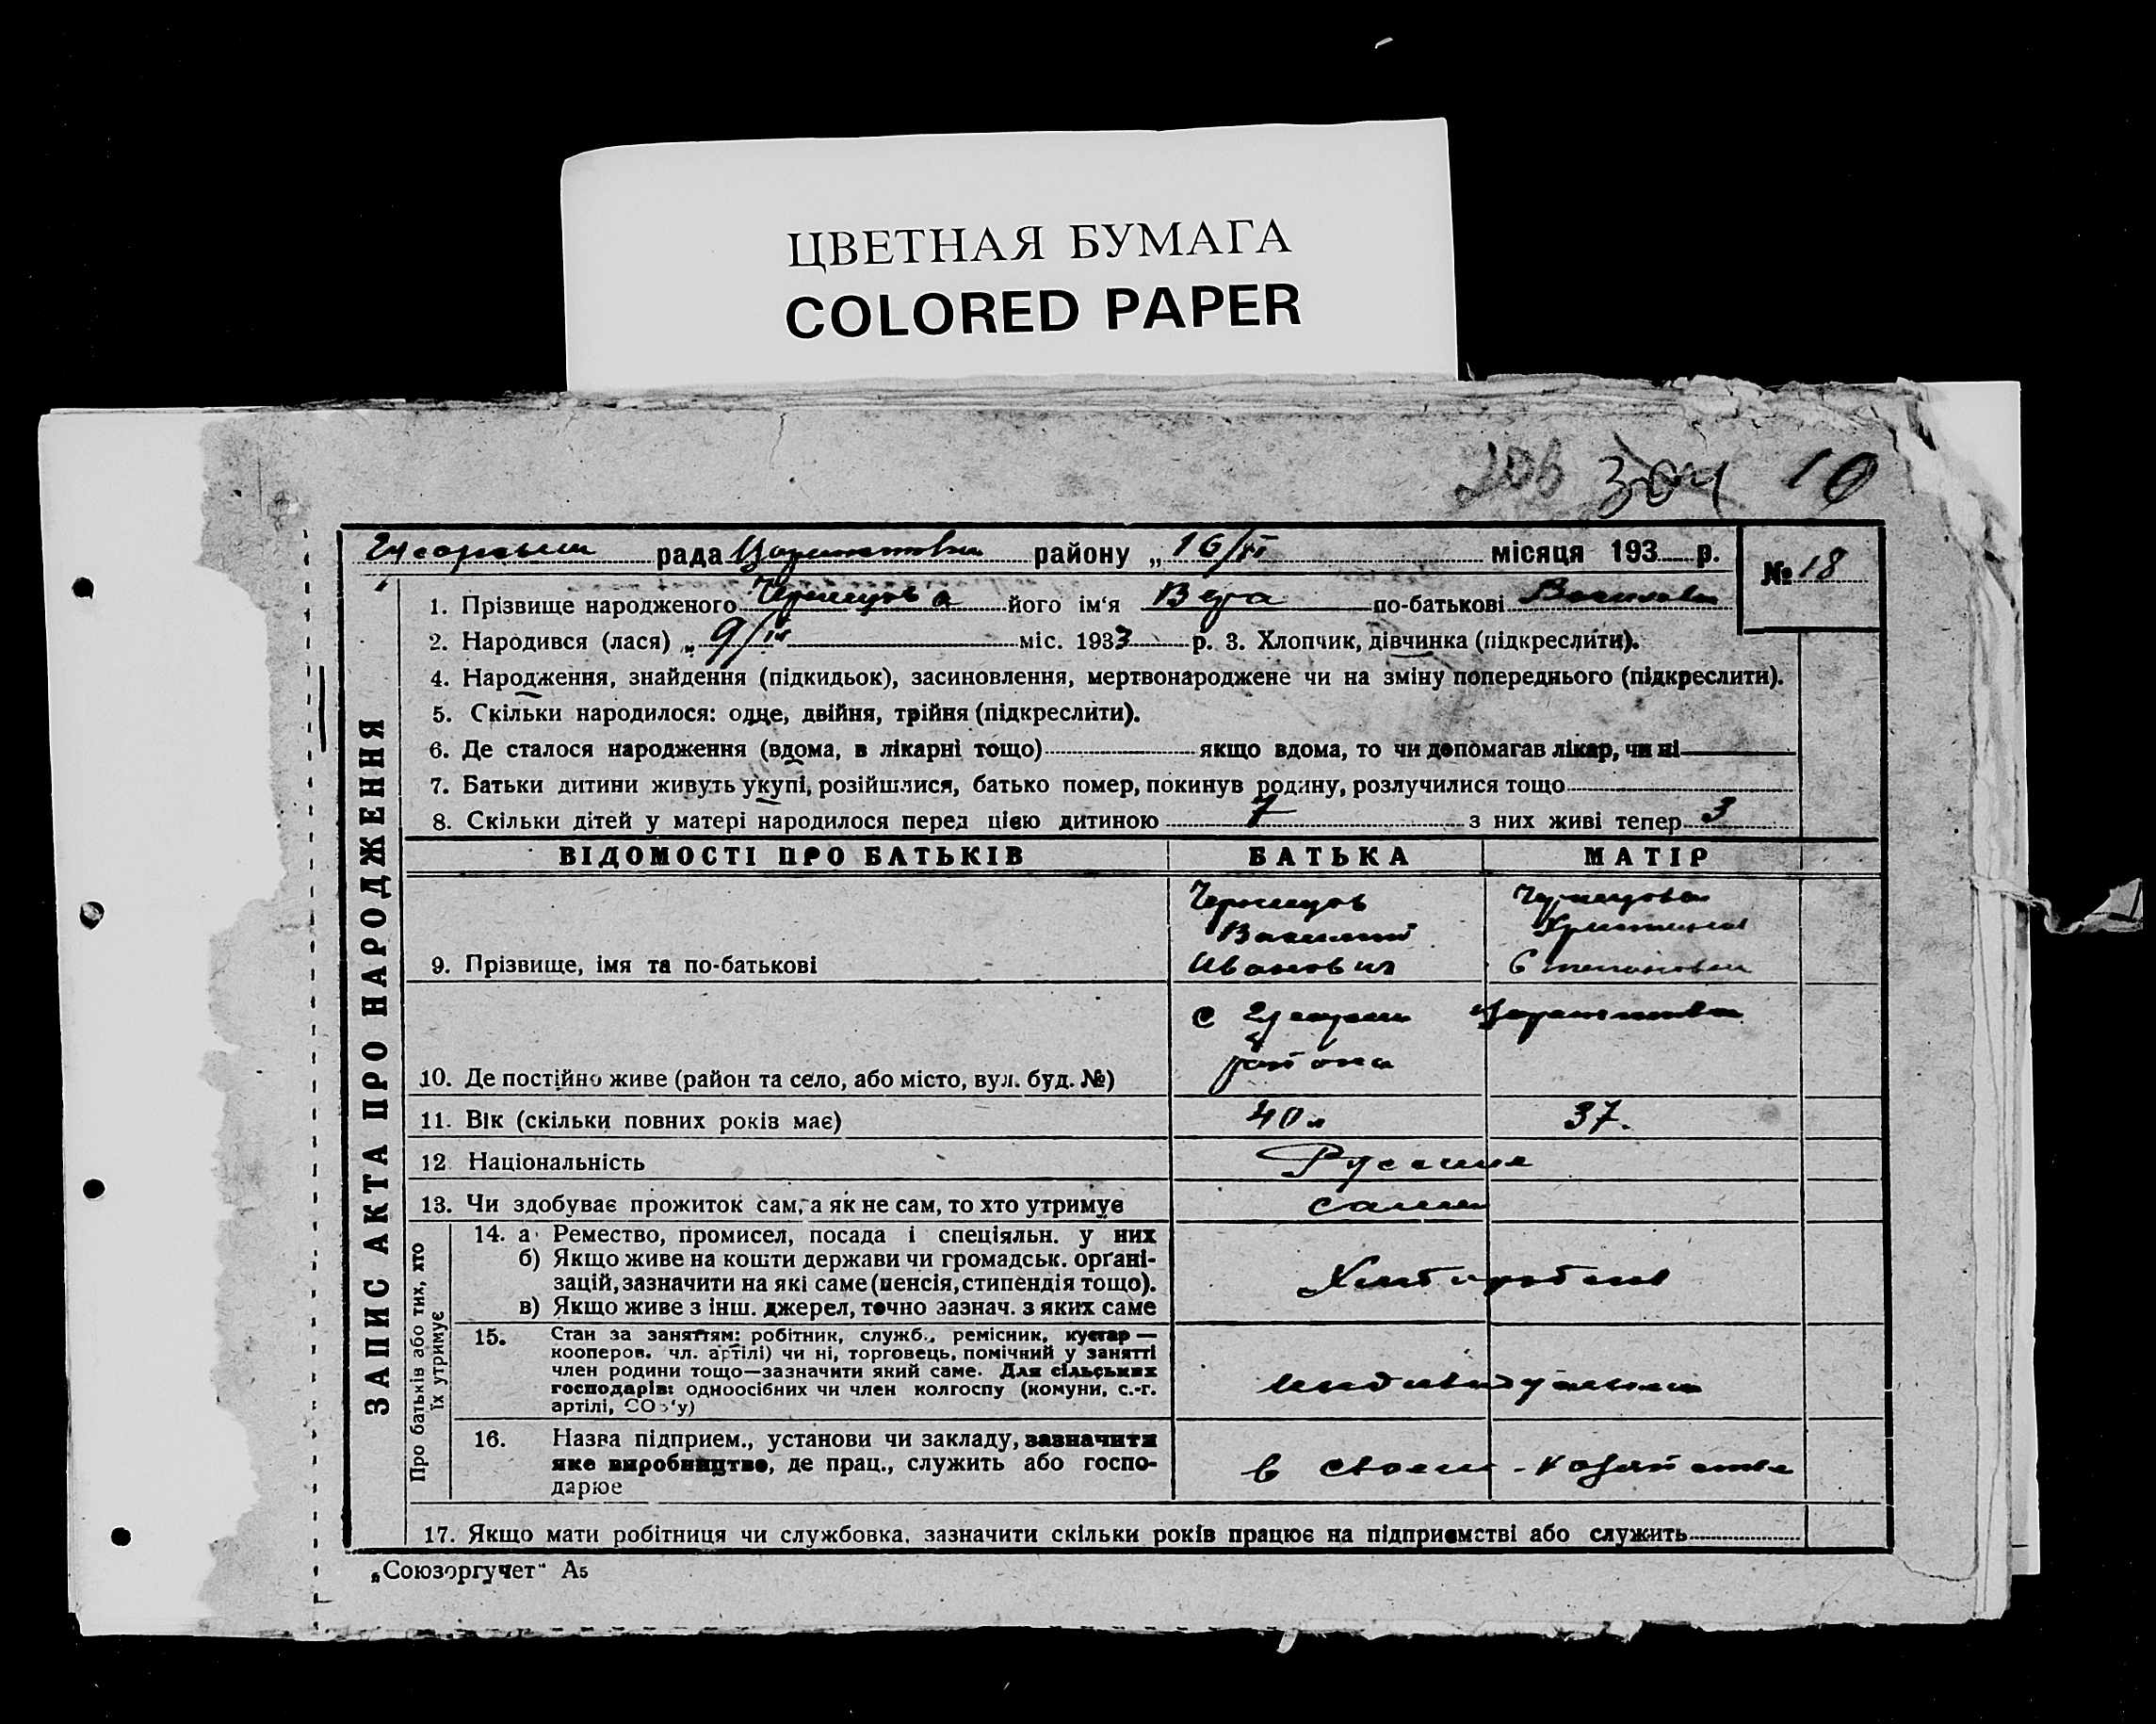 ЦВЕТНАЯ БУМАГА
COLORED PAPER
206 304 10
рада района „16/VI місяця 193 р.
№ 18
1. Прізвище народженого його ім‘я Вера по-батькові
2. Народився (лася) „9/ міс. 1933 р. 3. Хлопчик, дівчинка (підкреслити).
4. Народження, знайдення (підкидьок), засиновлення, мертвонароджене чи на зміну попереднього (підкреслити).
5. Скільки народилося: одне, двійня, трійня (підкреслити).
6. Де сталося народження (вдома, в лікарні тощо) якщо вдома, то чи допомагав лікар, чи ні
7. Батьки дитини живуть укупі, розійшлися, батько помер, покинув родину, розлучилися тощо
8. Скільки дітей у матері народилося перед цією дитиною 7 з них живі тепер 3
ЗАПИС АКТА ПРО НАРОДЖЕННЯ
ВІДОМОСТІ ПРО БАТЬКІВ БАТЬКА МАТІР
Василий
9. Прізвище, імя та по-батькові Иванович Степановна
с
района
10. Де постійно живе (район та село, або місто, вул. буд. №)
11. Вік (скільки повних років має) 40 л 37.
12. Національність Русские
13. Чи здобуває прожиток сам, а як не сам, то хто утримує сами
Про батьків або тих, хто
їх утримує
14. а Ремество, промисел, посада і спеціяльн. у них
б) Якщо живе на кошти держави чи громадськ. орґані-
зацій, зазначити на які саме (пенсія, стипендія тощо).
в) Якщо живе з інш. джерел, точно зазнач. з яких саме
15. Стан за заняттям: робітник, служб., ремісник, кустар —
кооперов. чл. артілі) чи ні, торговець, помічний у занятті
член родини тощо—зазначити який саме. Для сільських
господарів: одноосібних чи член колгоспу (комуни, с.-г.
артілі, СОЗ‘у)
16. Назва підприєм., установи чи закладу, зазначити
яке виробництво, де прац., служить або госпо-
дарює
в своем
17. Якщо мати робітниця чи службовка, зазначити скільки років працює на підприємстві або служить
„Союзоргучет“ А5